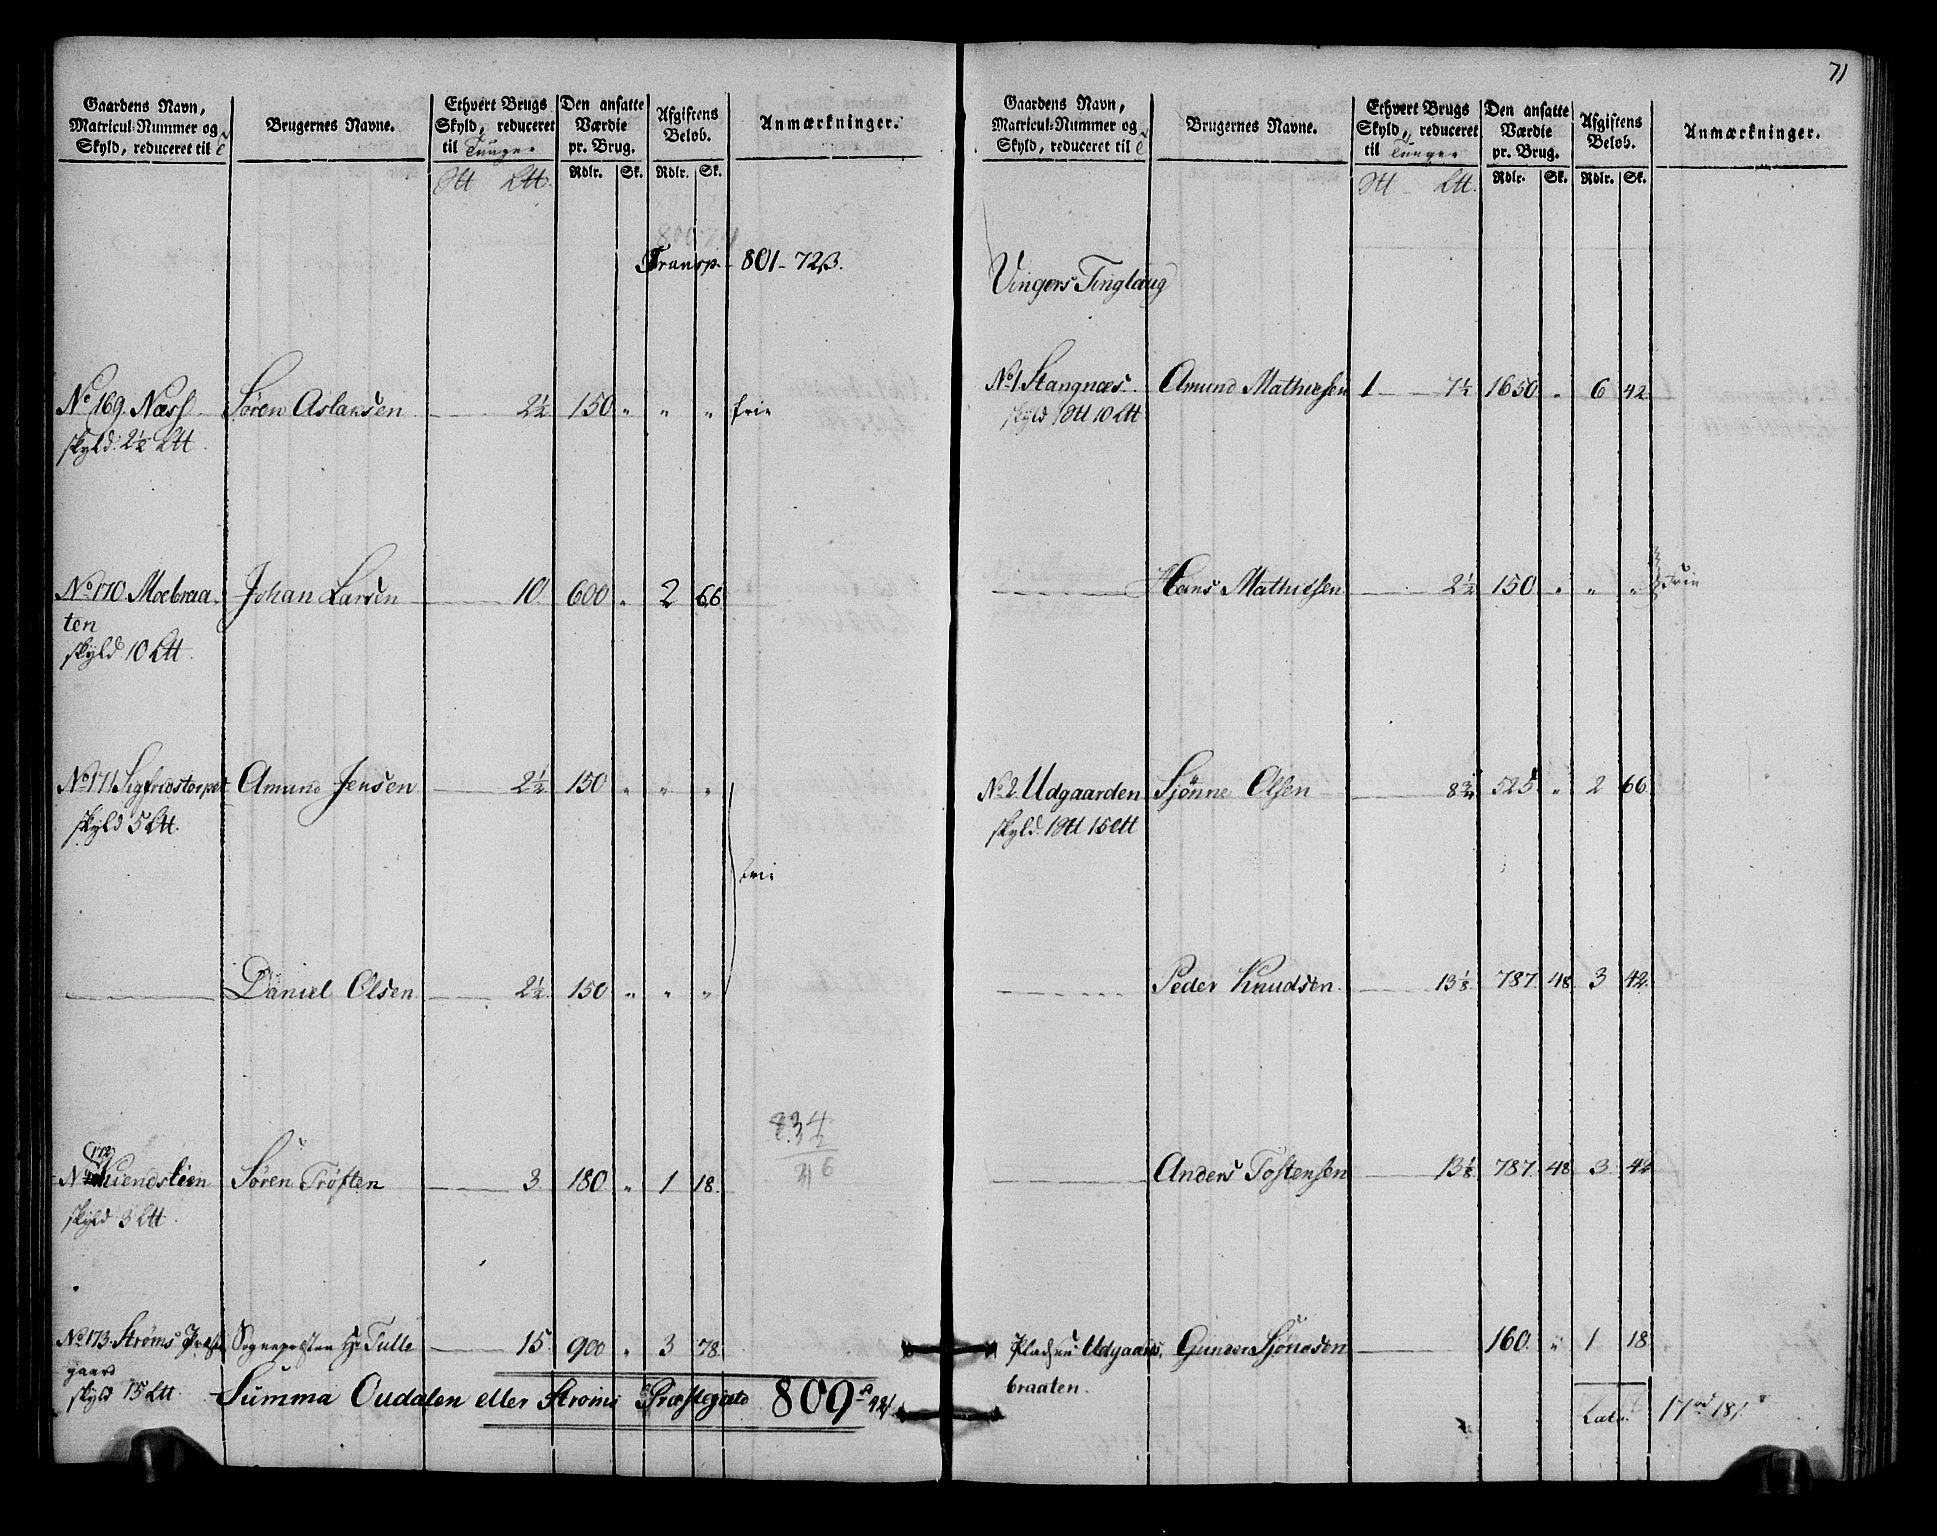 71
Gaardens Navn, Matricul-Nummer og Skyld, reduceret til | Brugernes Navne. | Ethvert Brugs Skyld, reduceret til Tunger | Den ansatte Værdie pr. Brug. | Afgiftens Beløb. | Anmærkninger.
Rdlr. Sk. Rdlr. Sk.
Transp. 801 - 72 β.
No 169. Næss Sören Aslaksen 2½ 150 " " " frie
skyld. 2½ Ltt.
No 170 Moebraa- Johan Larsen 10 600 " 2 66
ten
skyld 10 Ltt.
No 171 Sigfridstorpet Amund Jensen 2½ 150 " " "
skyld 5 Ltt.
frie
Daniel Olsen 2½ 150 " " "
834
172
No Sören Trösten 3 180 " 1 18
skyld 3 Ltt.
No 173. Ströms Præste Sognepresten Hr Tulle 15 900 " 3 78
gaard
skyld 15 Ltt.
Summa Oudalen eller Ströms Præstegield 809
Gaardens Navn, Matricul-Nummer og Skyld, reduceret til | Brugernes Navne. | Ethvert Brugs Skyld, reduceret til Tunger | Den ansatte Værdie pr. Brug. | Afgiftens Beløb. | Anmærkninger.
Rdlr. Sk. Rdlr. Sk.
Vingers Tinglaug
No 1. Stangnæs Amund Mathiesen 1 7½ 1650 " 6 42
skyld 1 Stt 10 Ltt
Hans Mathiesen 2½ 150 " " " Frie
No 2. Udgaarden Sjönne Olsen 8¾ 525 " 2 66
skyld. 1 Stt 15 Ltt
Peder Knudsen 13⅛ 787 48 3 42
Anders Tostensen 13⅛ 787 48 3 42
Pladsen Udgaards Gunder Sjönesen 160 " 1 18
braaten.
Lat. 17 18